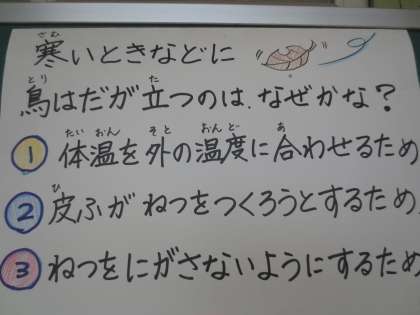 寒いときなどに
鳥はだが立つのは、なぜかな?
① 体温を外の温度に合わせるため
② 皮ふがねつをつくろうとするため
③ ねつをにがさないようにするため